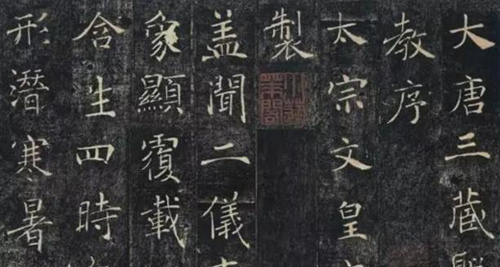 大唐三藏聖
教序
太宗文皇帝
製
盖聞二儀有
象顯覆載
含生四時
形潛寒暑